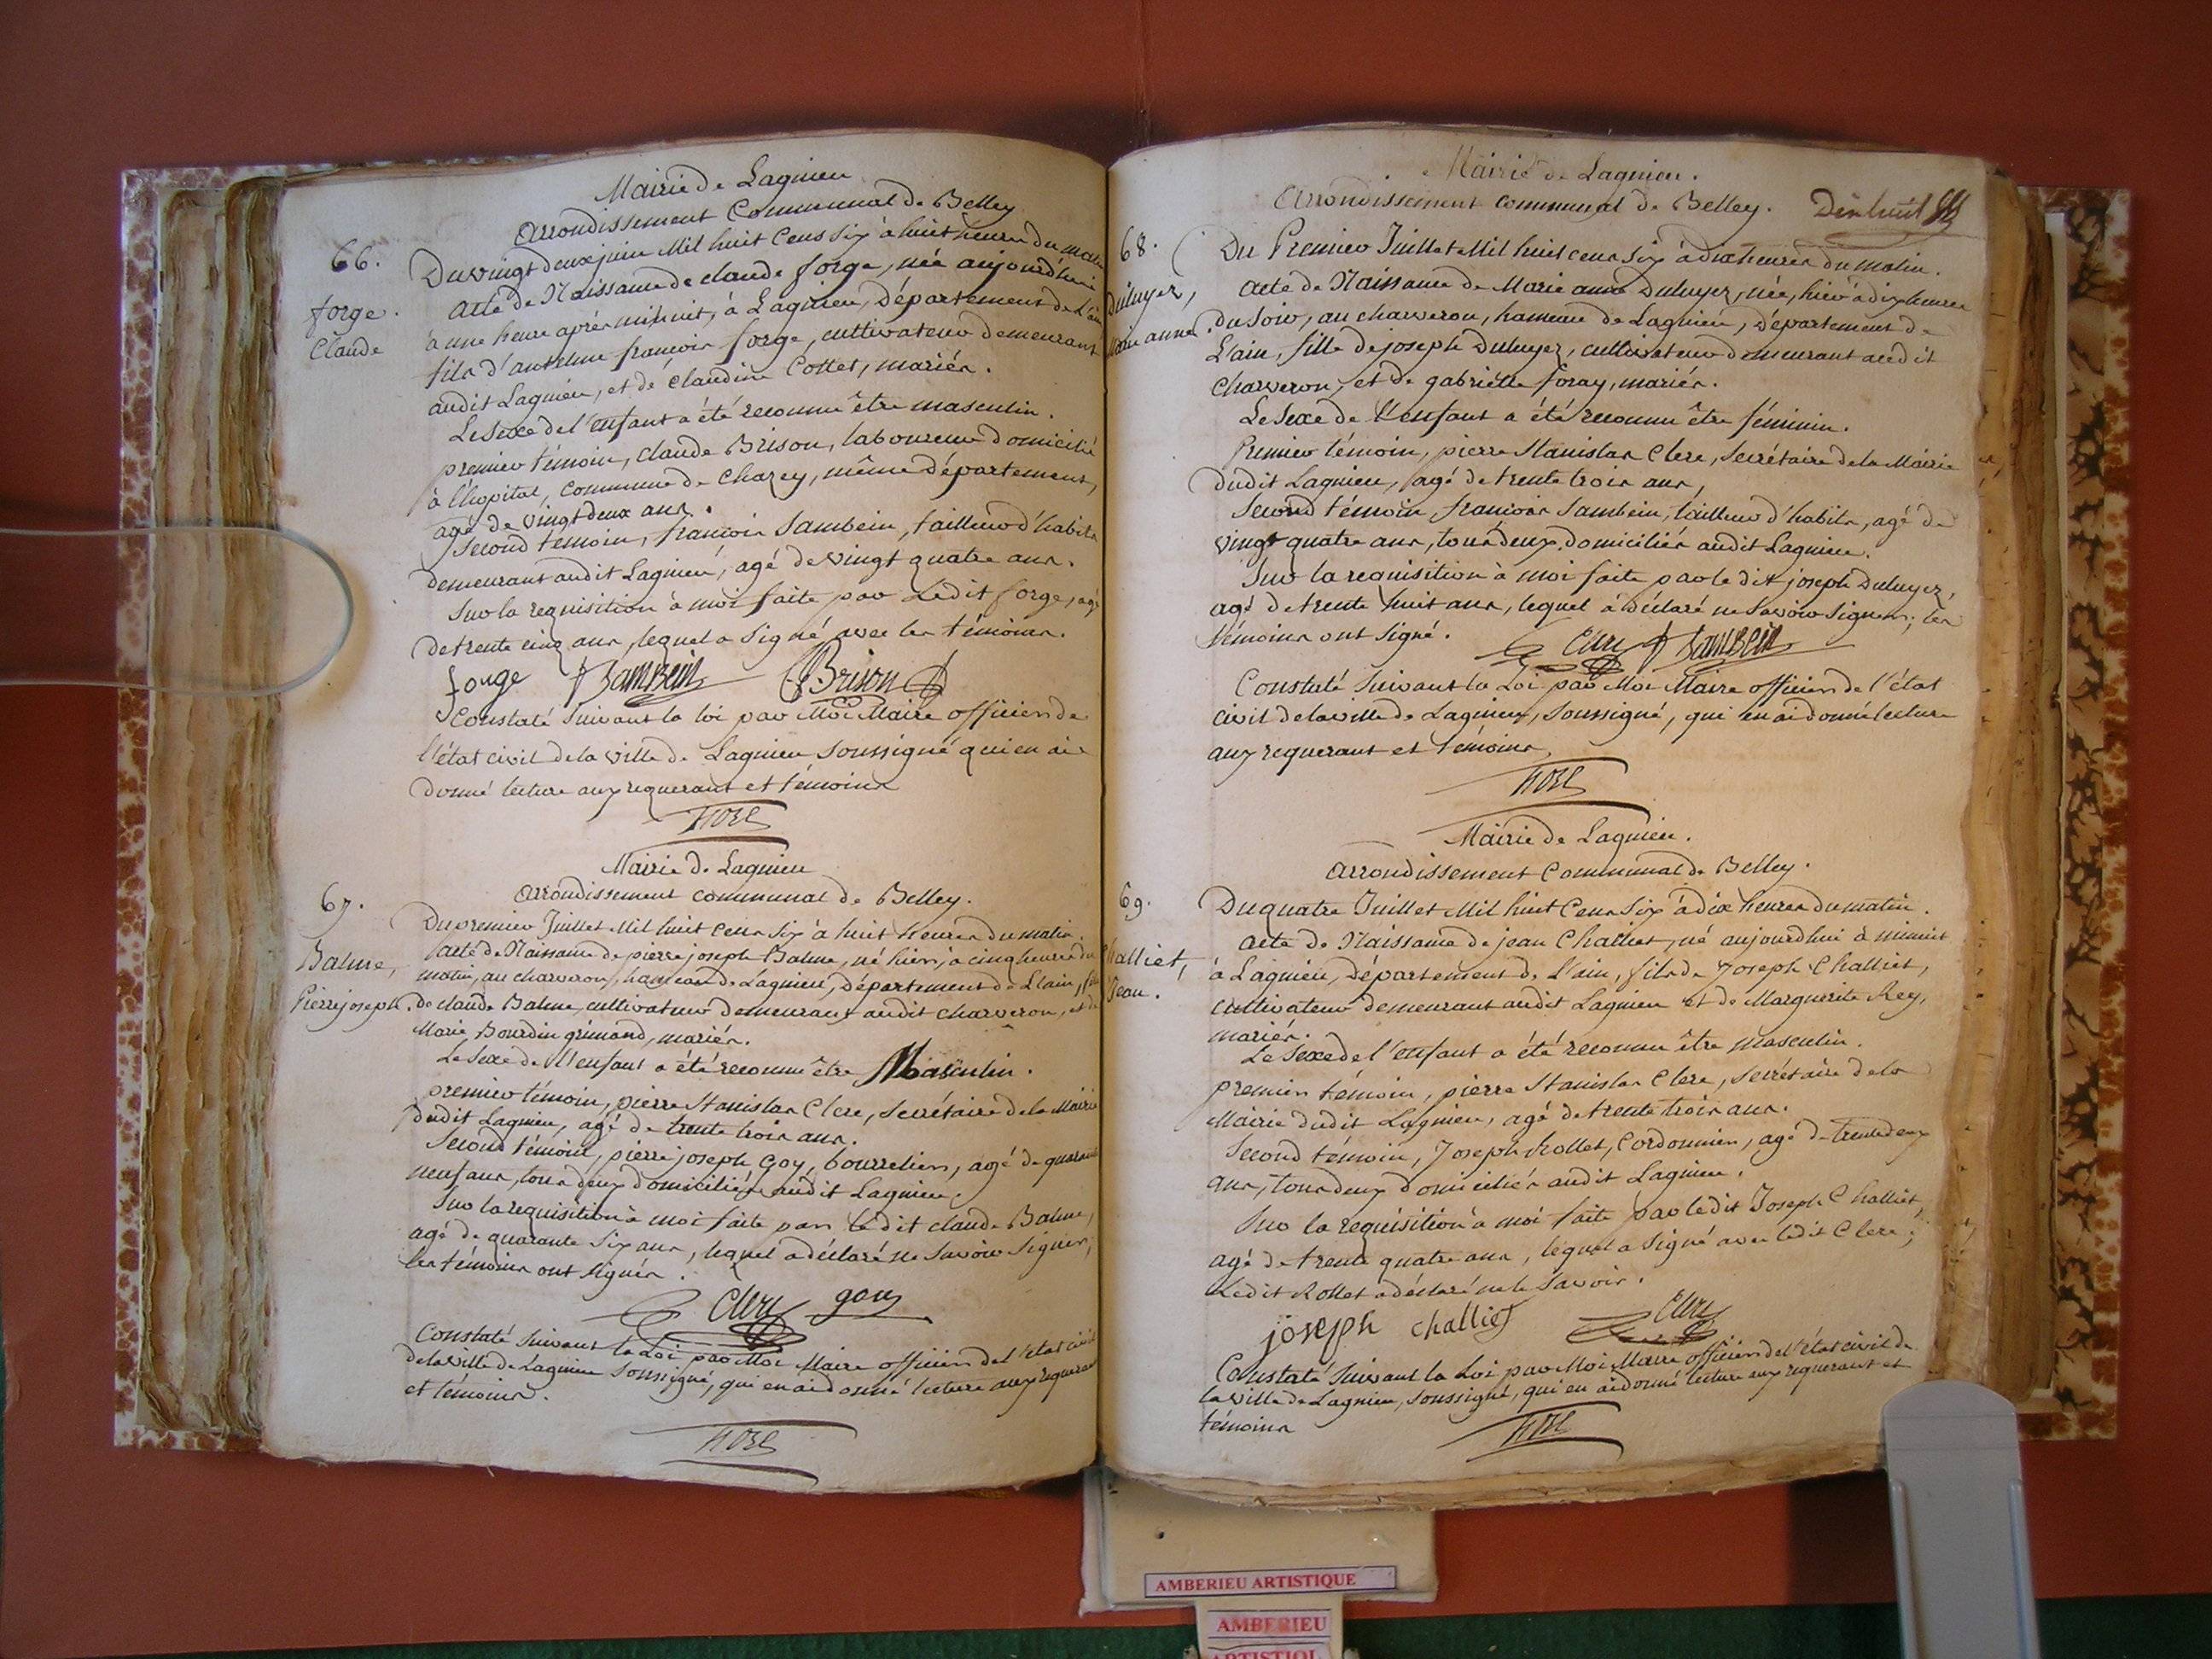 Mairie de Lagnieu
arrondissement Communal de Belley
66.
Du vingt deux juin Mil huit Cens Six à huit heures du matin
acte de Naissance de claude forge, née aujourd'hui
forge.
Claude
à une heure après minuit, à Lagnieu, Département de L'ain
fils d'anselme françois forge, cultivateur demeurant
audit Lagnieu, et de Claudine Collet, mariés.
Le Sexe de l'enfant a été reconnu être masculin.
premier témoin, claude Brison, laboureur domicilié
à l'hopital, Commune de Chazey, même département,
agé de vingt deux ans.
Second témoin, françois Sambein, tailleur d'habits
demeurant audit Lagnieu, agé de vingt quatre ans.
Sur la requisition à moi faite par Ledit forge, agé
de trente cinq ans, lequel a signé avec les témoins.
forge Sambein Brison
Constaté Suivant la loi par Moi Maire officier de
l'état civil de la ville de Lagnieu Soussigné qui en ai
donné lecture aux requerant et témoins
Mairie de Lagnieu
arrondissement communal de Belley.
67.
Du premier Juillet Mil huit Cens Six à huit heures du matin.
acte de Naissance de pierre joseph Balme, né hier, à cinq heures du
Balme,
Pierre joseph.
matin, au charveron, hameau de Lagnieu, département de L'ain, fils
de claude Balme, cultivateur demeurant audit charveron, et de
Marie Bourdin grimand, mariés.
Le Sexe de l'enfant a été reconnu être Masculin.
premier témoin, pierre Stanislas Clerc, Secrétaire de la Mairie
dudit Lagnieu, agé de trente trois ans.
Second témoin, pierre joseph Goy, bourrelier, agé de quarante
neuf ans, tous deux domiciliés audit Lagnieu,
Sur la requisition à moi faite par ledit claude Balme,
agé de quarante Six ans, lequel a déclaré ne Savoir Signer,
les témoins ont signés.
Clerc goy
Constaté Suivant la Loi par Moi Maire officier de l'état civil
de la ville de Lagnieu Soussigné, qui en ai donné lecture aux requerant
et témoins.
Mairie de Lagnieu.
arrondissement communal de Belley.
Dix huit
68.
Du Premier Juillet Mil huit cens Six à dix heures du matin.
Duluyer,
Marie anne.
acte de Naissance de Marie anne Duluyer, née, hier à dix heures
du Soir, au charveron, hameau de Lagnieu, département de
L'ain, fille de joseph Duluyer, cultivateur demeurant audit
charveron, et de gabrielle foray, mariés.
Le Sexe de l'enfant a été reconnu être féminin.
Premier témoin, pierre Stanislas Clerc, Secrétaire de la Mairie
dudit Lagnieu, agé de trente trois ans,
Second témoin, françois Sambein, tailleur d'habits, agé de
vingt quatre ans, tous deux domiciliés audit Lagnieu.
Sur la requisition à moi faite par le dit joseph Duluyer,
agé de trente huit ans, lequel à déclaré ne Savoir Signer; les
témoins ont signé.
Clerc Sambein
Constaté Suivant la Loi par Moi Maire officier de l'état
civil de la ville de Lagnieu, Soussigné, qui en ai donné lecture
aux requerant et témoins,
Mairie de Lagnieu.
arrondissement Communal de Belley.
69.
Du quatre Juillet Mil huit Cens Six à dix heures du matin.
Challiet,
Jean.
acte de Naissance de jean Challiet, né aujourdhui à minuit
à Lagnieu, Département de L'ain, fils de Joseph Challiet,
cultivateur demeurant audit Lagnieu et de Marguerite Rey,
mariés.
Le Sexe de l'enfant a été reconnu être masculin.
premier témoin, pierre Stanislas Clerc, secrétaire de la
Mairie dudit Lagnieu, agé de trente trois ans.
Second témoin, Joseph Rollet, Cordonnier, agé de trente deux
ans, tous deux domiciliés audit Lagnieu.
Sur la requisition à moi faite par ledit Joseph Challiet,
agé de trente quatre ans, lequel a signé avec ledit Clerc;
Ledit Rollet a déclaré ne le Savoir.
joseph challiet Clerc
Constaté Suivant la Loi par Moi Maire officier de l'état civil de
la ville de Lagnieu, Soussigné, qui en ai donné lecture aux requerant et
témoins
AMBERIEU ARTISTIQUE
AMBERIEU